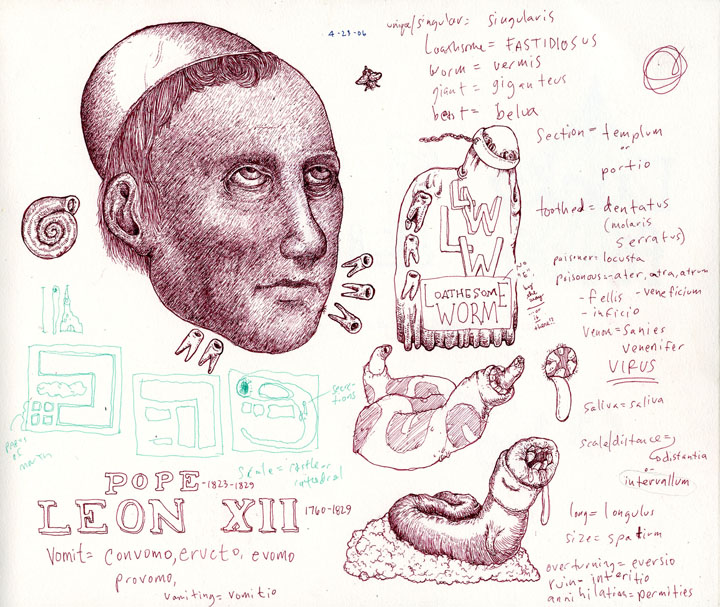 4-23-06
unique/singular = singularis
Loathsome = FASTIDIOSUS
worm = vermis
giant = giganteus
beast = belua
section = templum
or
portio
toothed = dentatus
(molaris
serratus)
poisoner = locusta
poisonous = ater, atra, atrum
- fellis - veneficium
- inficio
Venom = Sanies
venenifer
VIRUS
saliva = saliva
scale/distance =
distantia
or
intervallum
long = longulus
size = spatium
overturning = eversio
ruin = interitio
annihilation = permities
LW
LW
LW
LOATHESOME
WORM
NO
"E"
secre-
tions
scale = castle or
catedral
POPE -1823-1829
LEON XII 1760-1829
Vomit = convomo, eructo, evomo
provomo,
vomiting = vomitio